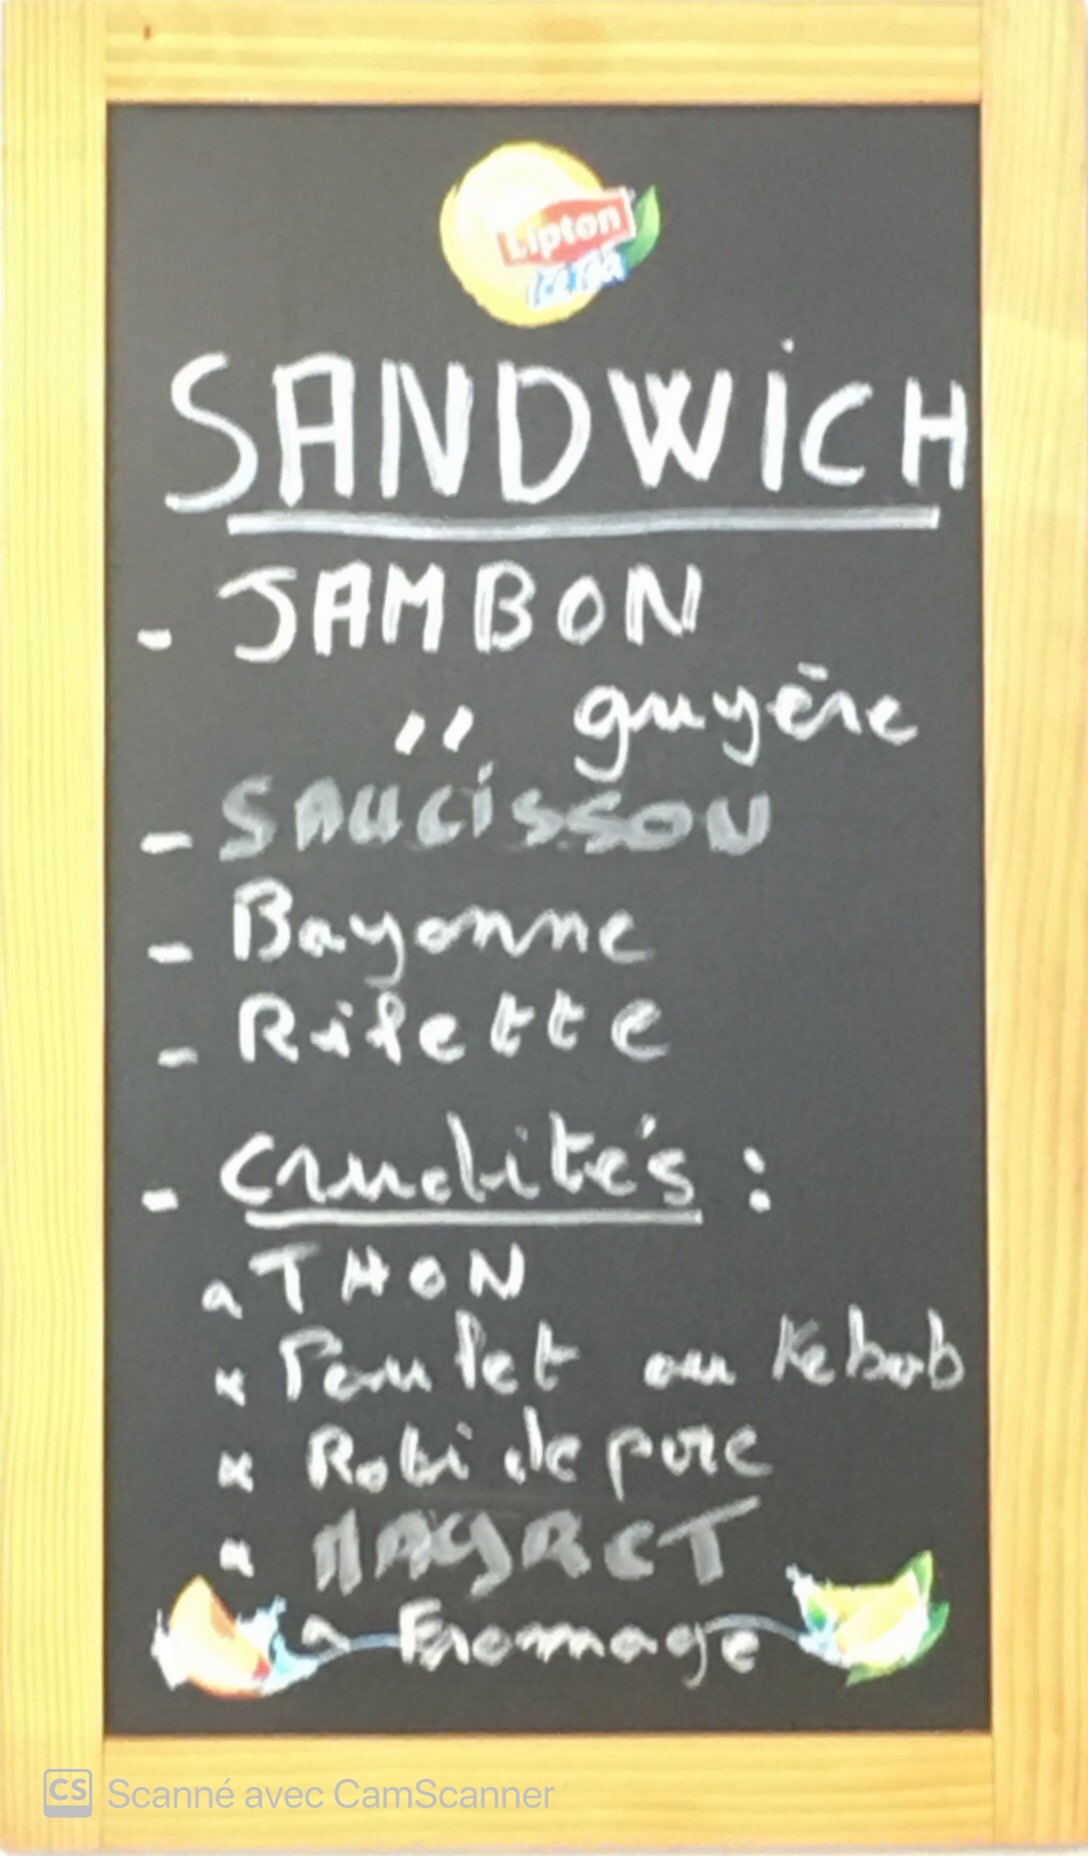 Lipton
Ice Tea
SANDWiCH
- JAMBON
" gruyère
- SAUCiSSON
- Bayonne
- Rilette
- Crudités :
x THON
x Poulet ou Kebab
x Roti de porc
x MAGRET
x Fromage
CS Scanné avec CamScanner